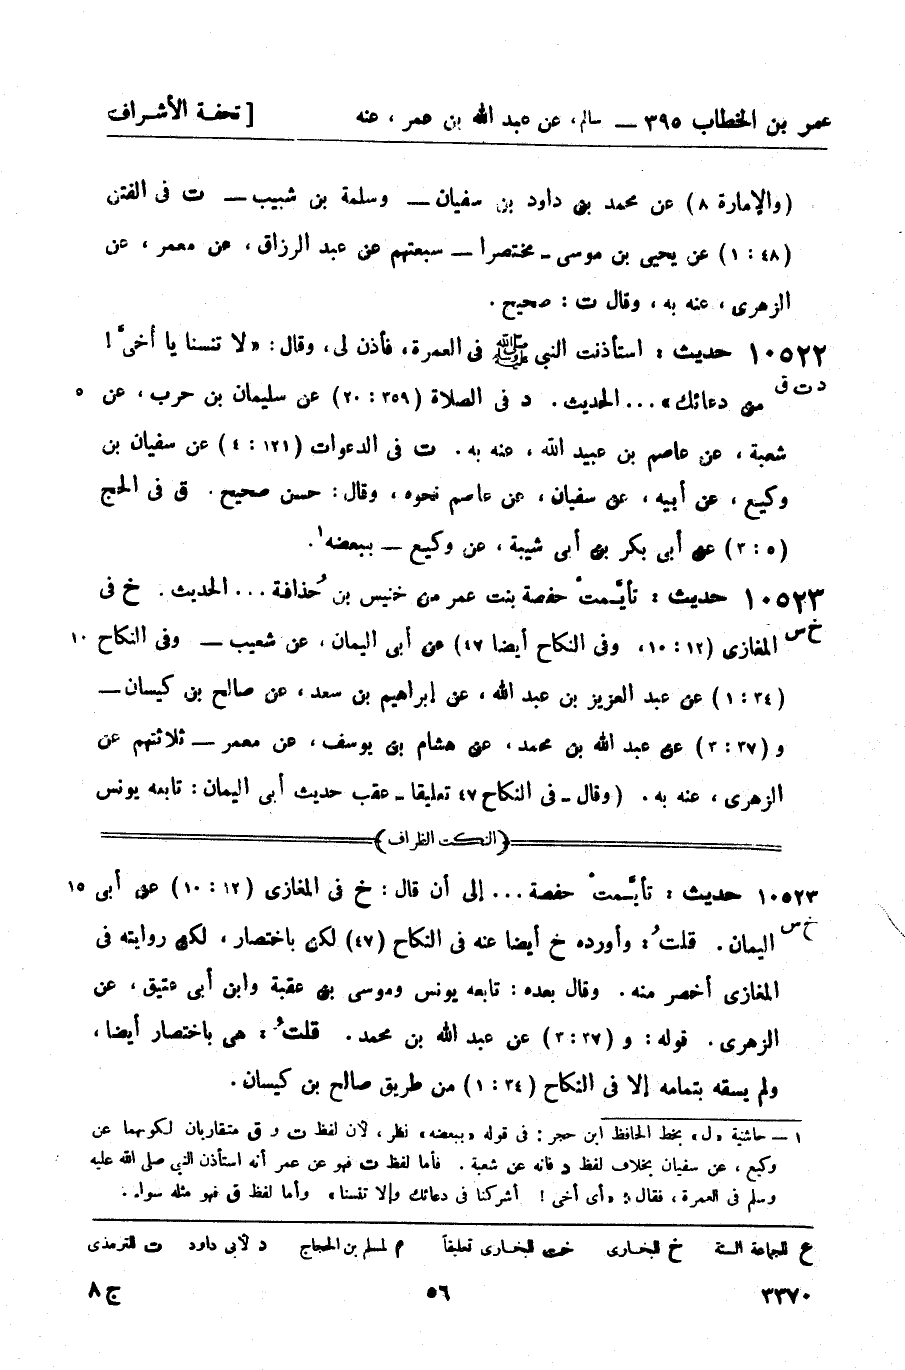 عمر بن الخطاب ٣٩٥ — سالم، عن عبد الله بن عمر، عنه [ تحفة الأشراف
(والإمارة ٨) عن محمد بن داود بن سفيان — وسلمة بن شبيب — ت فى الفتن
(٤٨ : ١) عن يحيى بن موسى - مختصرا — سبعتهم عن عبد الرزاق، عن معمر، عن
الزهرى، عنه به، وقال ت : صحيح.
١٠٥٢٢ حديث : استأذنت النبى ﷺ فى العمرة، فأذن لى، وقال: «لا تنسنا يا أخىَّ !
د ت ق من دعائك»... الحديث. د فى الصلاة (٣٥٩ : ٢٠) عن سليمان بن حرب، عن ٥
شعبة، عن عاصم بن عبيد الله، عنه به. ت فى الدعوات (١٢١ : ٤) عن سفيان بن
وكيع، عن أبيه، عن سفيان، عن عاصم نحوه، وقال: حسن صحيح. ق فى الحج
(٥ : ٣) عن أبى بكر بن أبى شيبة، عن وكيع — ببعضه١.
١٠٥٢٣ حديث : تأيَّمتْ حفصة بنت عمر من خنيس بن حُذافة... الحديث. خ فى
خ س المغازى (١٢ : ١٠، وفى النكاح أيضا ٤٧) عن أبى اليمان، عن شعيب — وفى النكاح ١٠
(٣٤ : ١) عن عبد العزيز بن عبد الله، عن إبراهيم بن سعد، عن صالح بن كيسان —
و (٣٧ : ٣) عن عبد الله بن محمد، عن هشام بن يوسف، عن معمر — ثلاثتهم عن
الزهرى، عنه به. (وقال - فى النكاح ٤٧ تعليقا - عقب حديث أبى اليمان: تابعه يونس
(النكت الظراف)
١٠٥٢٣ حديث : تأيَّمتْ حفصة... إلى أن قال: خ فى المغازى (١٢ : ١٠) عن أبى ١٥
خ س اليمان. قلتُ: وأورده خ أيضا عنه فى النكاح (٤٧) لكن باختصار، لكن روايته فى
المغازى أخصر منه. وقال بعده: تابعه يونس وموسى بن عقبة وابن أبى عتيق، عن
الزهرى. قوله: و (٣٧ : ٣) عن عبد الله بن محمد. قلتُ: هى باختصار أيضا،
ولم يسقه بتمامه إلا فى النكاح (٣٤ : ١) من طريق صالح بن كيسان.
١ — حاشية «ل» بخط الحافظ ابن حجر: فى قوله «ببعضه» نظر، لأن لفظ ت و ق متقاربان لكونهما عن
وكيع، عن سفيان بخلاف لفظ د فانه عن شعبة. فأما لفظ ت فهو عن عمر أنه استأذن النبى صلى الله عليه
وسلم فى العمرة، فقال: «أى أخى ! أشركنا فى دعائك ولا تنسنا» وأما لفظ ق فهو مثله سواء.
ع للجماعة الستة خ للبخارى خت للبخارى تعليقاً م لمسلم بن الحجاج د لأبى داود ت للترمذى
٣٣٧٠ ٥٦ ج ٨